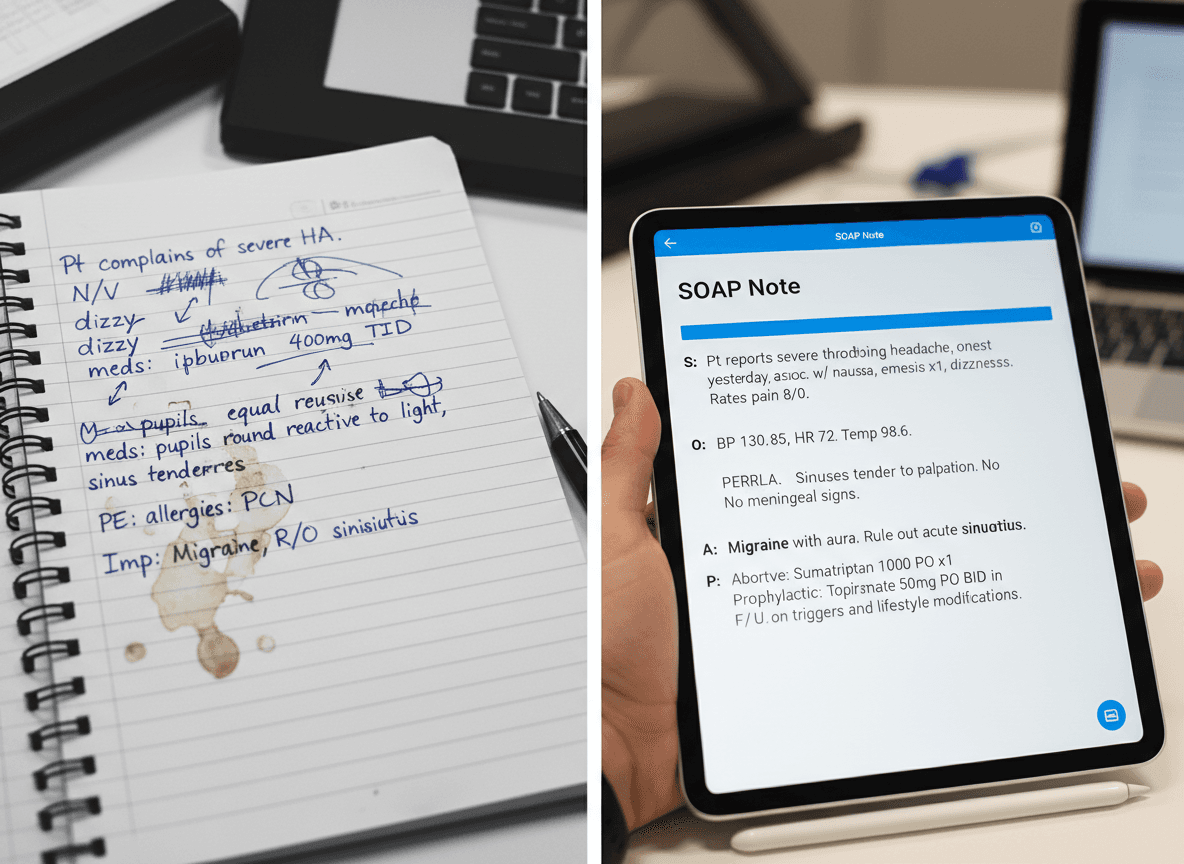 Pt complains of severe HA.
N/V
dizzy
dizzy
meds: ipbubrun 400mg TID
pupils equal reusuise
meds: pupils round reactive to light,
sinus tenderres
PE: allergies: PCN
Imp: Migraine, R/O sinisiutus
SOAP Note
SOAP Note
S: Pt reports severe throdbing headache, onest
yesterday, asıoc. w/ naussa, emesis x1, dizznesss.
Rates pain 8/0.
O: BP 130.85, HR 72. Temp 98.6.
PERRLA. Sinuses tender to palpation. No
No meningeal signs.
A: Migraine with aura. Rule out acute sinuotius.
P: Abortve: Sumatriptan 1000 PO x1
Prophylactic: Topirsmate 50mg PO BID in
F/U. on triggers and lifestyle modifcations.